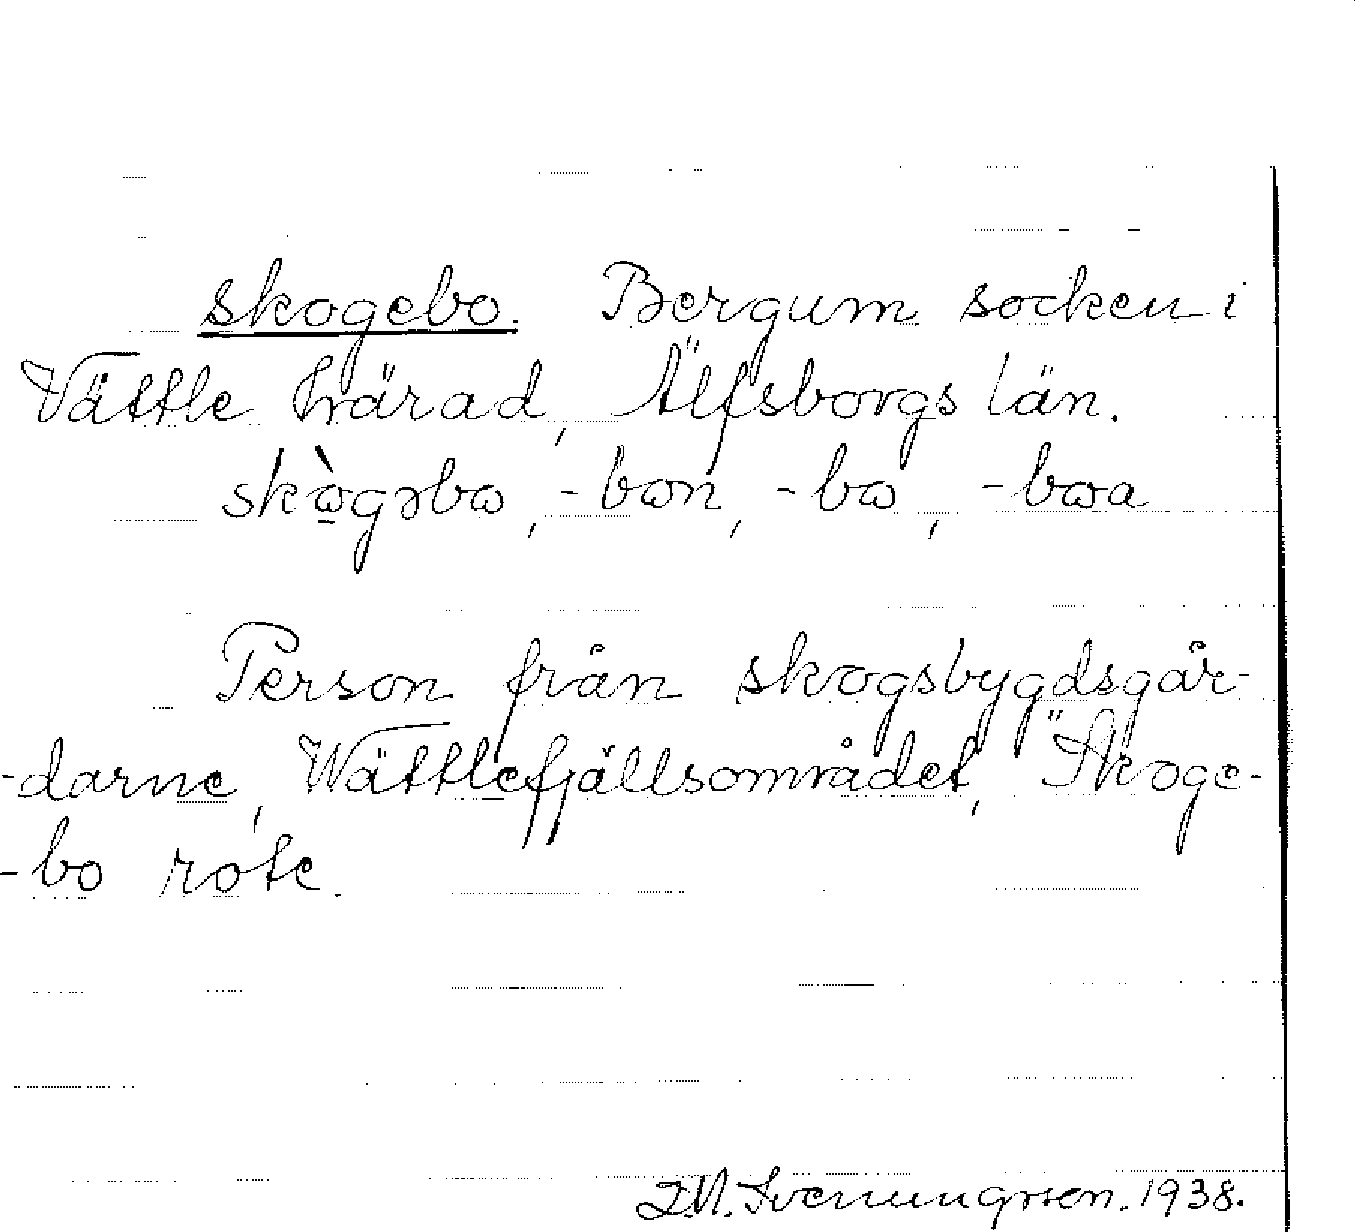 skogebo. Bergum socken i
Vättle härad, Älfsborgs län.
skògəbω, -bωn, -bω, -bωa
Person från skogsbygdsgår-
-darne, Wättlefjällsområdet, "Skoge-
-bo rote.
Svenungsson. 1938.